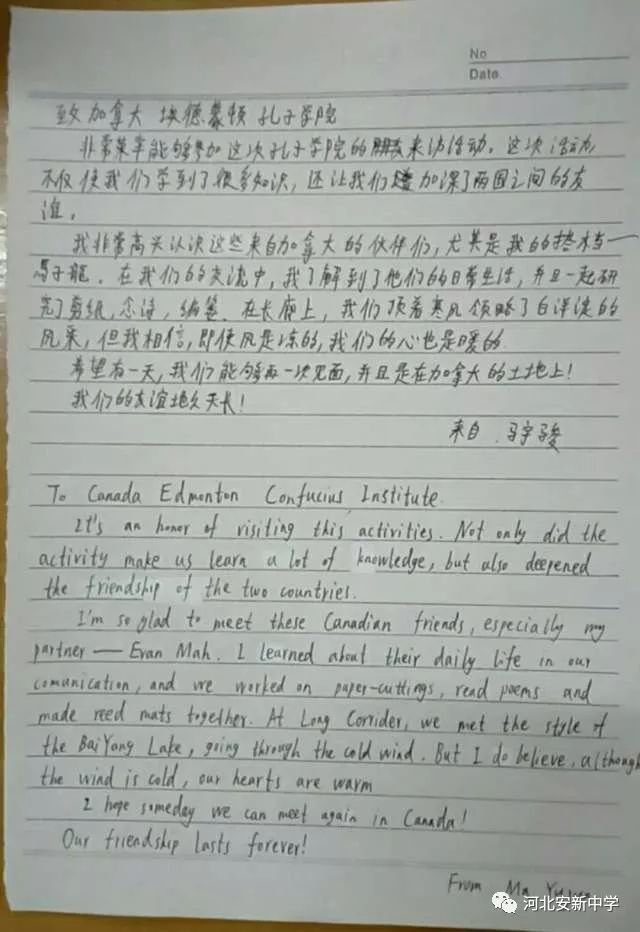 No
Date.
致加拿大埃德蒙顿孔子学院
非常荣幸能够参加这次孔子学院的朋友来访活动。这次活动
不仅使我们学到了很多知识,还让我们加深了两国之间的友
谊。
我非常高兴认识这些来自加拿大的伙伴们,尤其是我的搭档——
馬子龍。在我们的交流中,我了解到了他们的日常生活,并且一起研
究了剪纸,念诗,编苇。在长廊上,我们顶着寒风领略了白洋淀的
风采,但我相信,即使风是冻的,我们的心也是暖的
希望有一天,我们能够再一次见面,并且是在加拿大的土地上!
我们的友谊地久天长!
来自 马宇骏
To Canada Edmonton Confucius Institute.
It's an honor of visiting this activities. Not only did the
activity make us learn a lot of knowledge, but also deepened
the friendship of the two countries.
I'm so glad to meet these Canadian friends, especially my
partner — Evan Mah. I learned about their daily life in our
comunication, and we worked on paper-cuttings, read poems and
made reed mats together. At Long Corrider, we met the style of
the BaiYang Lake, going through the cold wind. But I do believe, although
the wind is cold, our hearts are warm
I hope someday we can meet again in Canada!
Our friendship lasts forever!
From Ma
河北安新中学